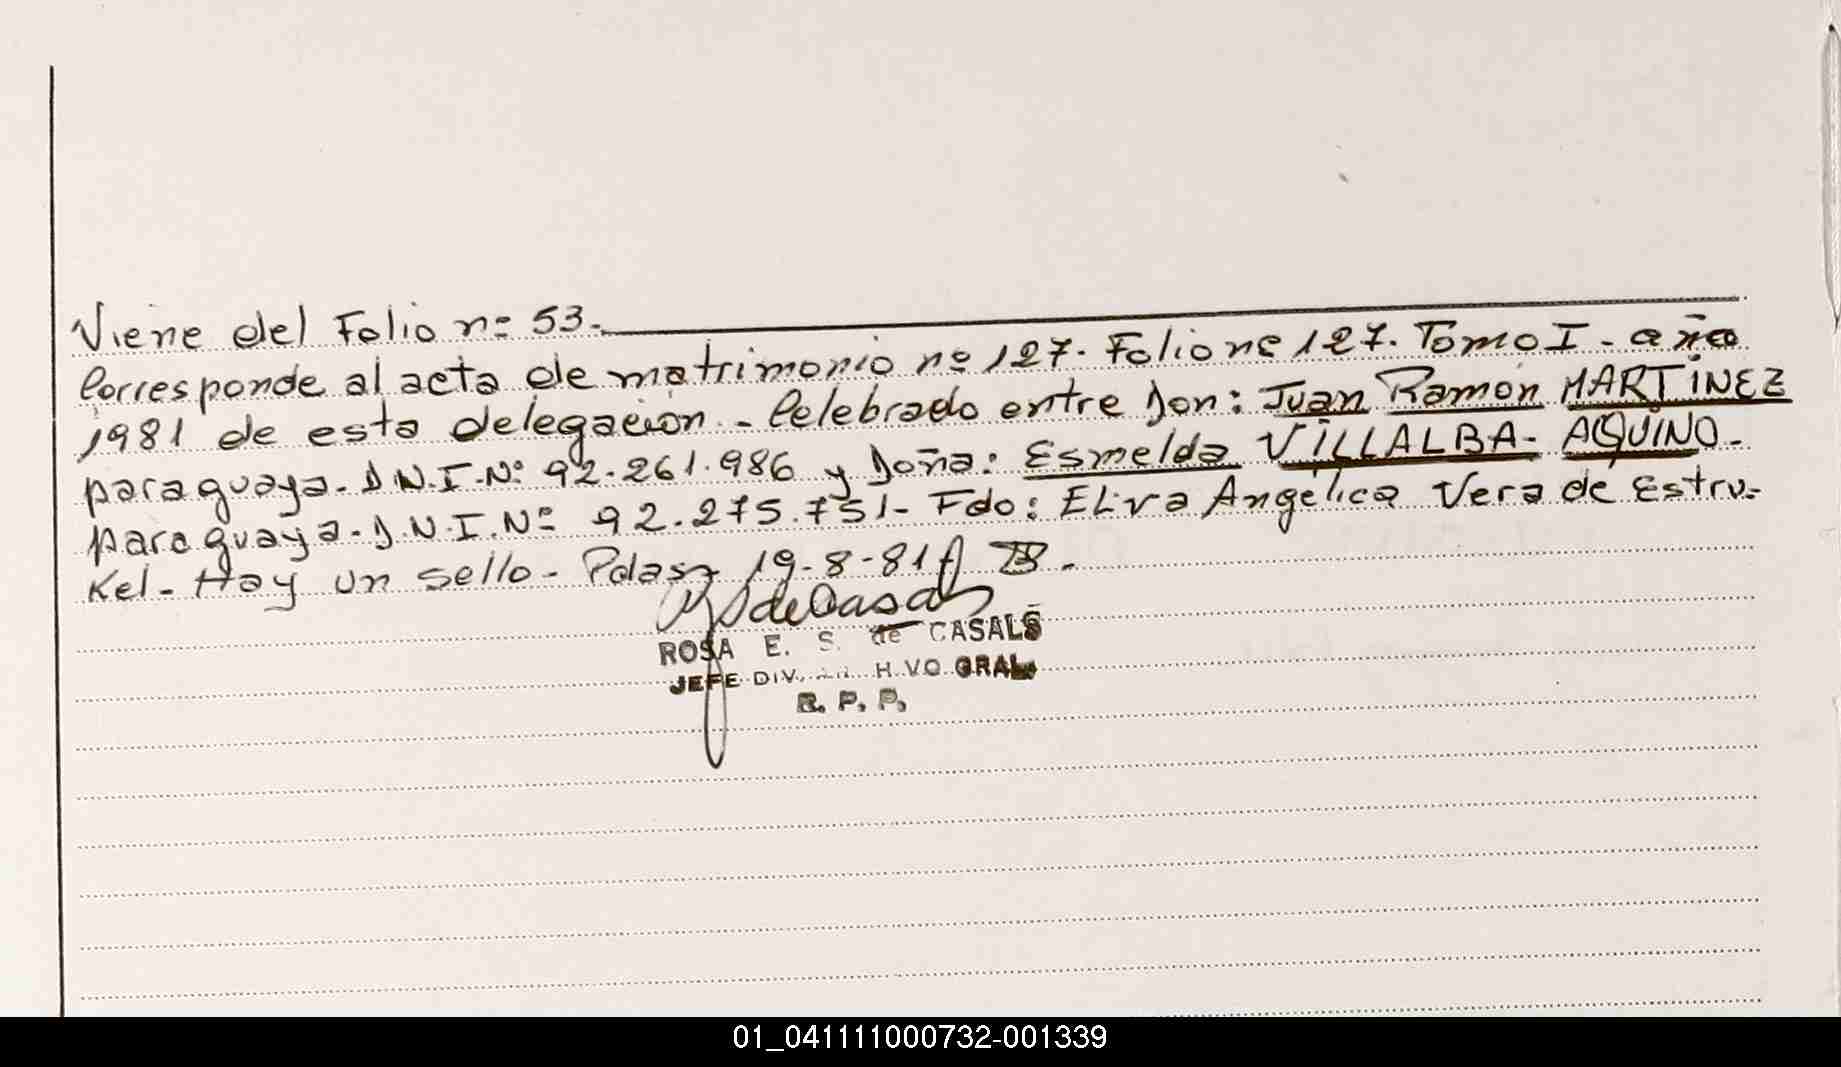 Viene del Folio nº 53.
Corresponde al acta de matrimonio nº 127. Folio nº 127. Tomo I - año
1981 de esta delegación - Celebrado entre Don: Juan Ramón MARTINEZ
paraguaya - D.N.I. Nº 92.261.986 y Doña: Esmelda VILLALBA - AQUINO -
paraguaya - D.N.I. Nº 92.275.751 - Fdo: ELva Angélica Vera de Estru-
kel - Hay un sello - Pdas, 19-8-81
deCasals
ROSA E. S. de CASALS
JEFE DIV. GRAL.
R. P. P.
01_041111000732-001339